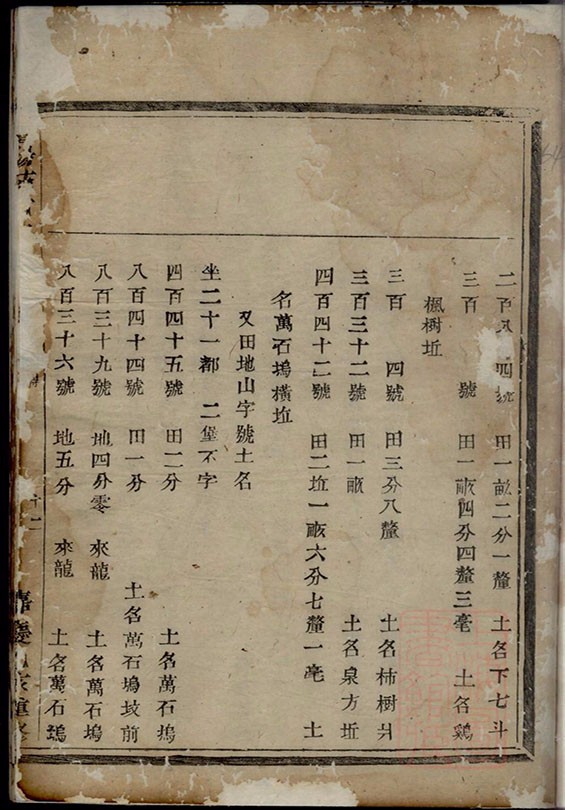 二百八 四號 田一畝二分一釐 土名下七斗
三百 號 田一畝四分四釐三毫 土名鷄
楓樹坵
三百 四號 田三分八釐 土名柿樹
三百三十二號 田一畝 土名泉方坵
四百四十二號 田二坵一畝六分七釐一毫 土
名萬石塢橫坵
又田地山字號土名
坐二十一都 二堡不字
四百四十五號 田二分 土名萬石塢
八百四十四號 田一分 土名萬石塢坟前
八百三十九號 地四分零 來龍 土名萬石塢
八百三十六號 地五分 來龍 土名萬石塢
十二
慶